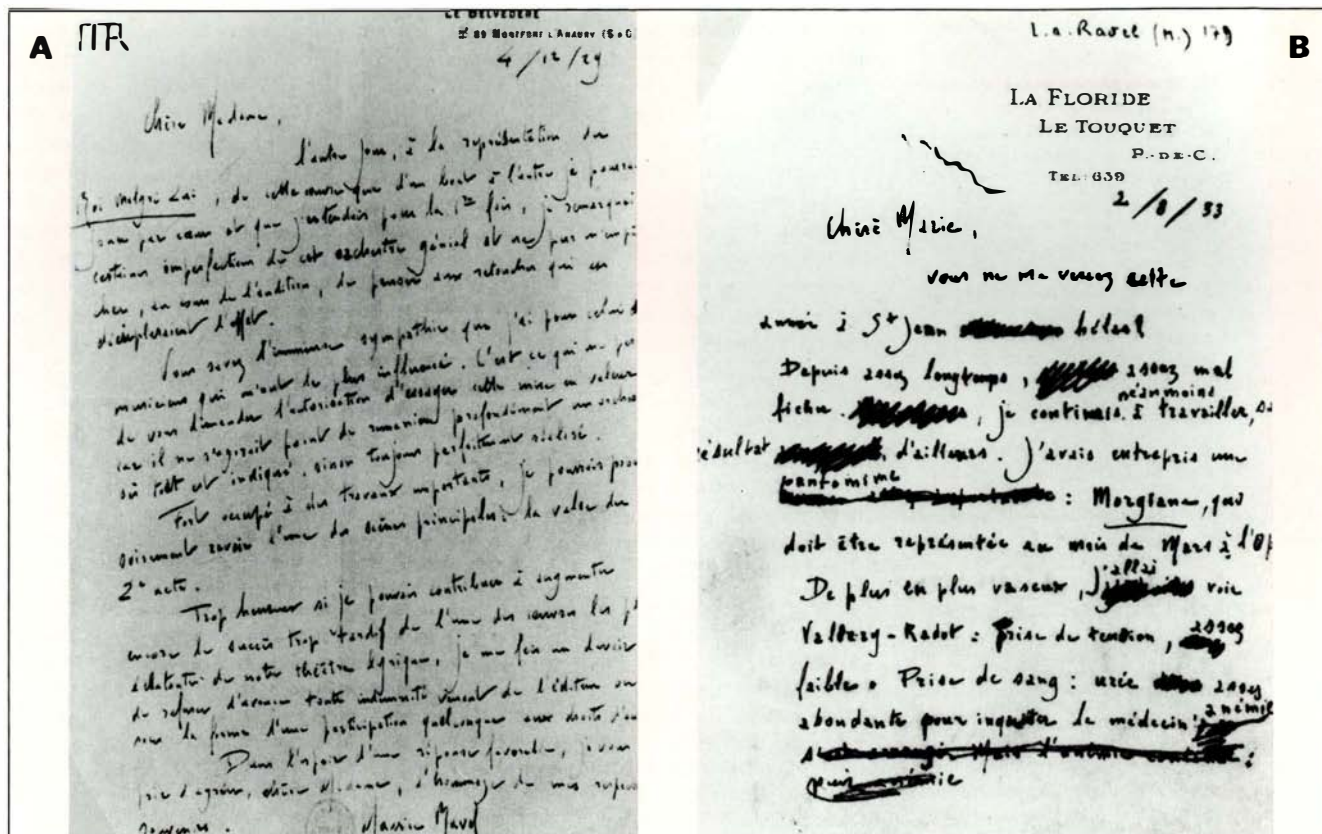 A
MR
LE BELVÉDÈRE
MONTFORT L'AMAURY (S & O)
4/12/29
Chère Madame,
l'autre jour, à la représentation du
Roi malgré Lui, de cette œuvre que d'un bout à l'autre je pourrai
jouer par cœur et que j'entendais pour la 1re fois, je remarquai
certaines imperfections de cet orchestre génial et ne pus m'empê
cher, au cours de l'audition, de penser aux retouches qui en
décupleraient l'effet.
Vous savez l'immense sympathie que j'ai pour celui des
musiciens qui m'ont le plus influencé. C'est ce qui me per
de vous demander l'autorisation d'essayer cette mise en valeur
car il ne s'agirait point de remanier profondément un orches
où tout est indiqué, sinon toujours parfaitement réalisé.
Fort occupé à des travaux importants, je pourrais
revoir l'une des scènes principales: la valse du
2e acte.
Trop heureux si je pouvais contribuer à augmenter
encore le succès trop tardif de l'une des œuvres les p
éclatantes de notre théâtre lyrique, je me fais un devoir
de refuser d'avance toute indemnité venant de l'éditeur ou
sous la forme d'une participation quelconque aux droits d'au
Dans l'espoir d'une réponse favorable, je vous
prie d'agréer, chère Madame, l'hommage de mes respec
Maurice Ravel
B
L.a. Ravel (M.) 179
LA FLORIDE
LE TOUQUET
P.-DE-C.
TEL: 639
2/8/33
Chère Marie,
vous ne me verrez cette
année à St Jean hélas!
Depuis assez longtemps, assez mal
néanmoins
fichu, je continuais à travailler, sa
résultat d'ailleurs. J'avais entrepris une
pantomime
: Morgiane, qui
doit être représentée au mois de Mars à l'Op
j'allai
De plus en plus vaseux, voir
Vallery-Radot: prise de tension, assez
faible. Prise de sang: urée assez
abondante pour inquiéter le médecin; anémie